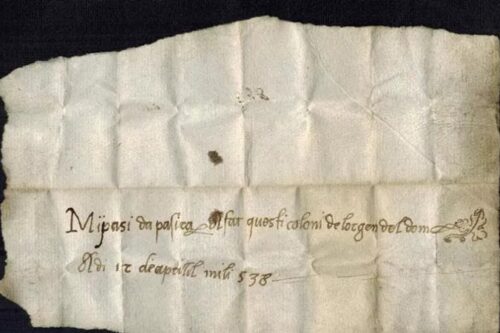 Mi pasi da pasica Al far questi coloni de lorgen del dom
Al di 12 de aprill mili 538